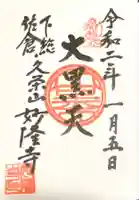 令和二年 一月五日
大黒天
下総
佐倉 久栄山妙隆寺